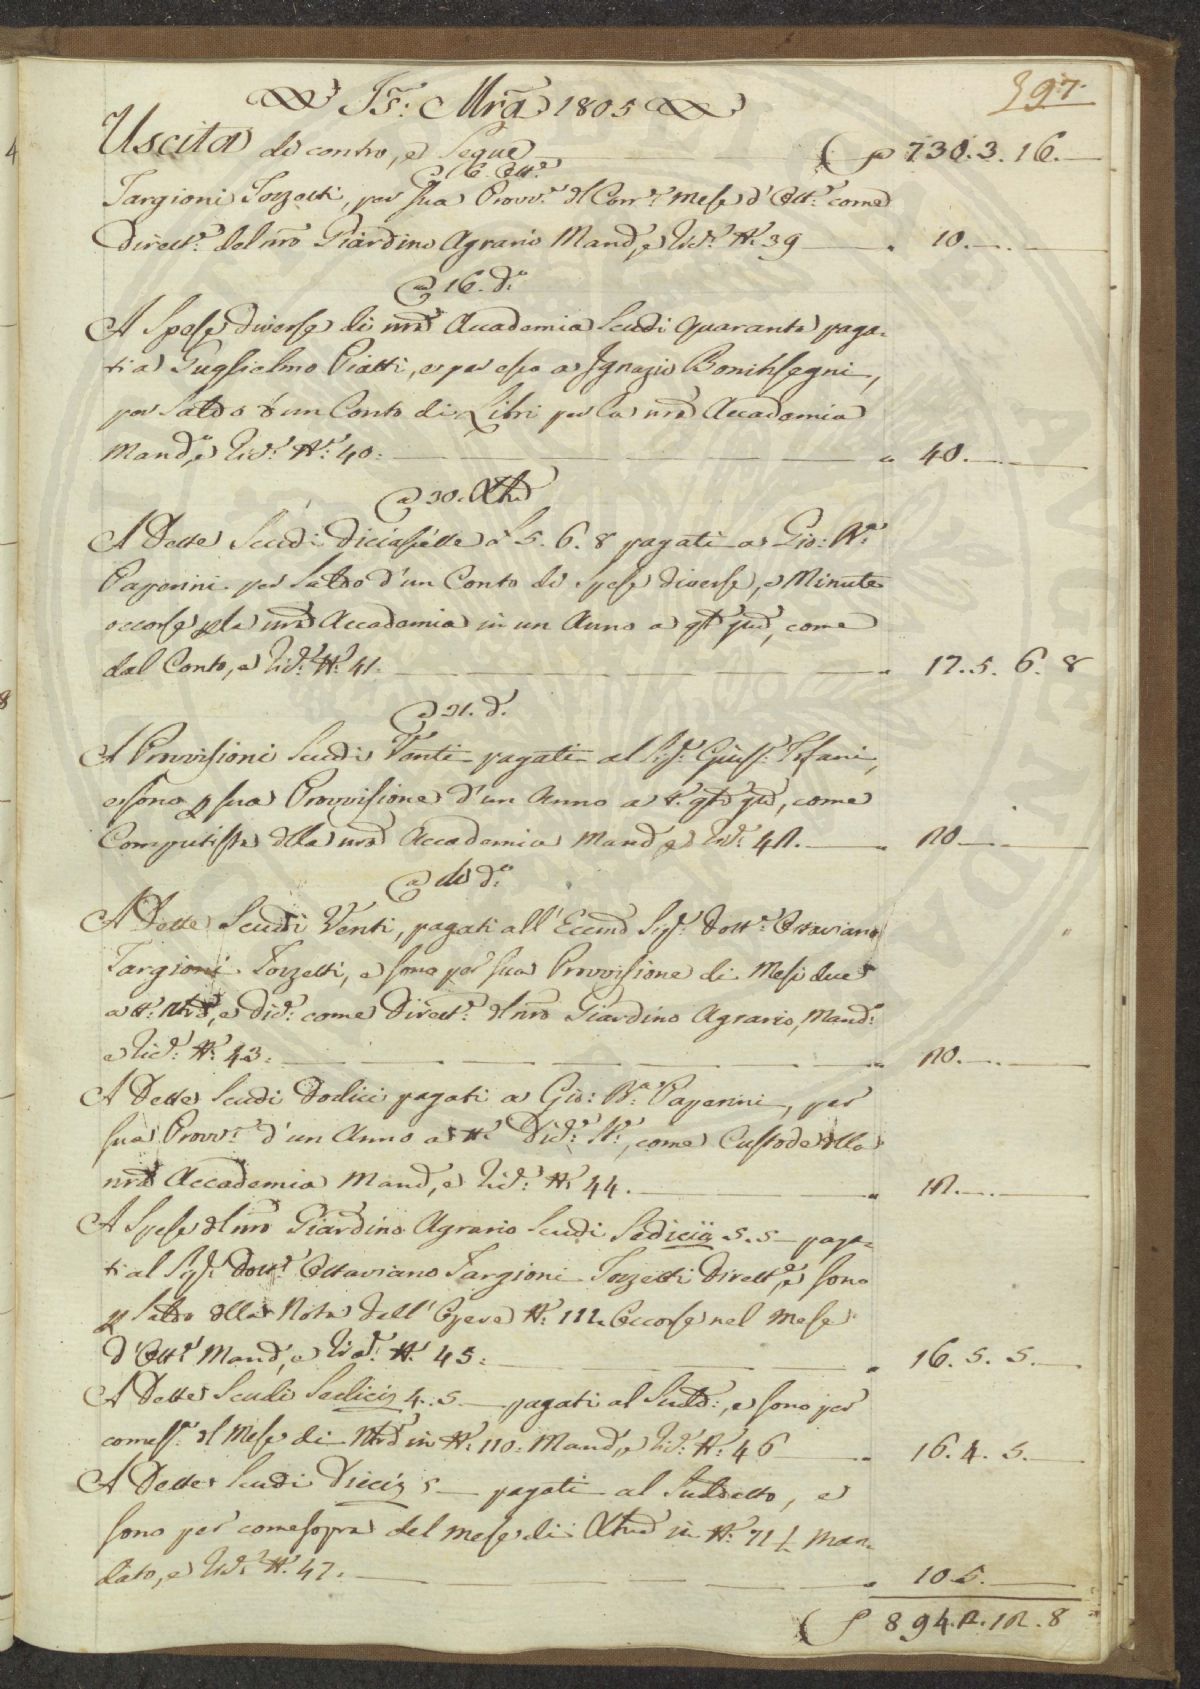 397
Js: Mra 1805
Uscita di contro, e segue 730.3.16.
a 16. Ott.e
Targioni Tozzetti, per sua Provv.e del Corr.e mese d'Ott.e come
Dirett.e del nro Giardino Agrario Mand.o, e Ric.a N.o 39 10.
a 16. d.o
A Spese diverse di nra Accademia Scudi quaranta paga-
ti a Guglielmo Piatti, e per esso a Ignazio Boninsegni,
per Saldo d'un Conto di Libri per la nra Accademia
Mand.o, e Ric.a N.o 40. 40.
a 30. Xbre
A Dette Scudi diciassette 5. 6. 8 pagati a Gio: B.a
Paperini per Saldo d'un Conto di Spese diverse, e Minute
occorse p la nra Accademia in un Anno a come
dal Conto, e Ric.a N.o 41. 17. 5. 6. 8
a 31. d.o
A Provvisioni Scudi Venti pagati al Sig.r Giuss.e
e sono p sua Provvisione d'un Anno a come
Computista della nra Accademia Mand.o, e Ric.a 42. 20
a dì d.o
A Dette Scudi Venti, pagati all' Eccmo Sig.r Dott.e Ottaviano
Targioni Tozzetti, e sono per sua Provvisione di Mesi due
a t.o 9bre, e Dic.e come Dirett.e del nro Giardino Agrario, Mand.o
e Ric.a N.o 43. 20.
A Dette Scudi Dodici pagati a Gio: B.a Paperini, per
sua Provv.e d'un Anno a t.o Dic.e St.e, come Custode della
nra Accademia Mand.o, e Ric.a N.o 44. 12.
A Spese del nro Giardino Agrario Scudi Sedici 5. 5 paga-
ti al Sig.r Dott.e Ottaviano Targioni Tozzetti Dirett.e, e sono
p Saldo della Nota dell' Opere N.o 112 Occorse nel Mese
d'Ott.e Mand.o, e Ric.a N.o 45. 16. 5. 5.
A Dette Scudi Sedici 4. 5 pagati al Sudd.o, e sono per
comess.a del Mese di 9bre in N.o 110. Mand.o, e Ric.a N.o 46 16. 4. 5.
A Dette Scudi Dieci 5 pagati al Suddetto, e
sono per comesopra del mese di Xbre in N.o 71 Man-
dato, e Ric.a N.o 47. 10 5.
894. 2. 12. 8